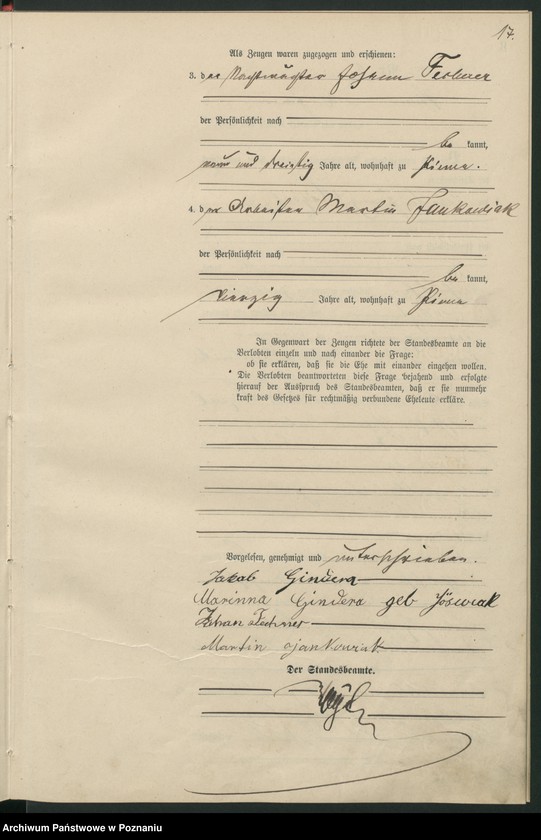 17.
Als Zeugen waren zugezogen und erschienen:
3. der Nachtwächter Johann Fechner
der Persönlichkeit nach
be kannt,
neun und dreißig Jahre alt, wohnhaft zu Pinne.
4. der Arbeiter Martin Jankowiak
der Persönlichkeit nach
be kannt,
vierzig Jahre alt, wohnhaft zu Pinne
In Gegenwart der Zeugen richtete der Standesbeamte an die
Verlobten einzeln und nach einander die Frage:
ob sie erklären, daß sie die Ehe mit einander eingehen wollen.
Die Verlobten beantworteten diese Frage bejahend und erfolgte
hierauf der Ausspruch des Standesbeamten, daß er sie nunmehr
kraft des Gesetzes für rechtmäßig verbundene Eheleute erkläre.
Vorgelesen, genehmigt und unterschrieben.
Jakob Gindera
Marinna Gindera geb Jöswiak
Johan Fechner
Martin Jankowiak
Der Standesbeamte.
Archiwum Państwowe w Poznaniu